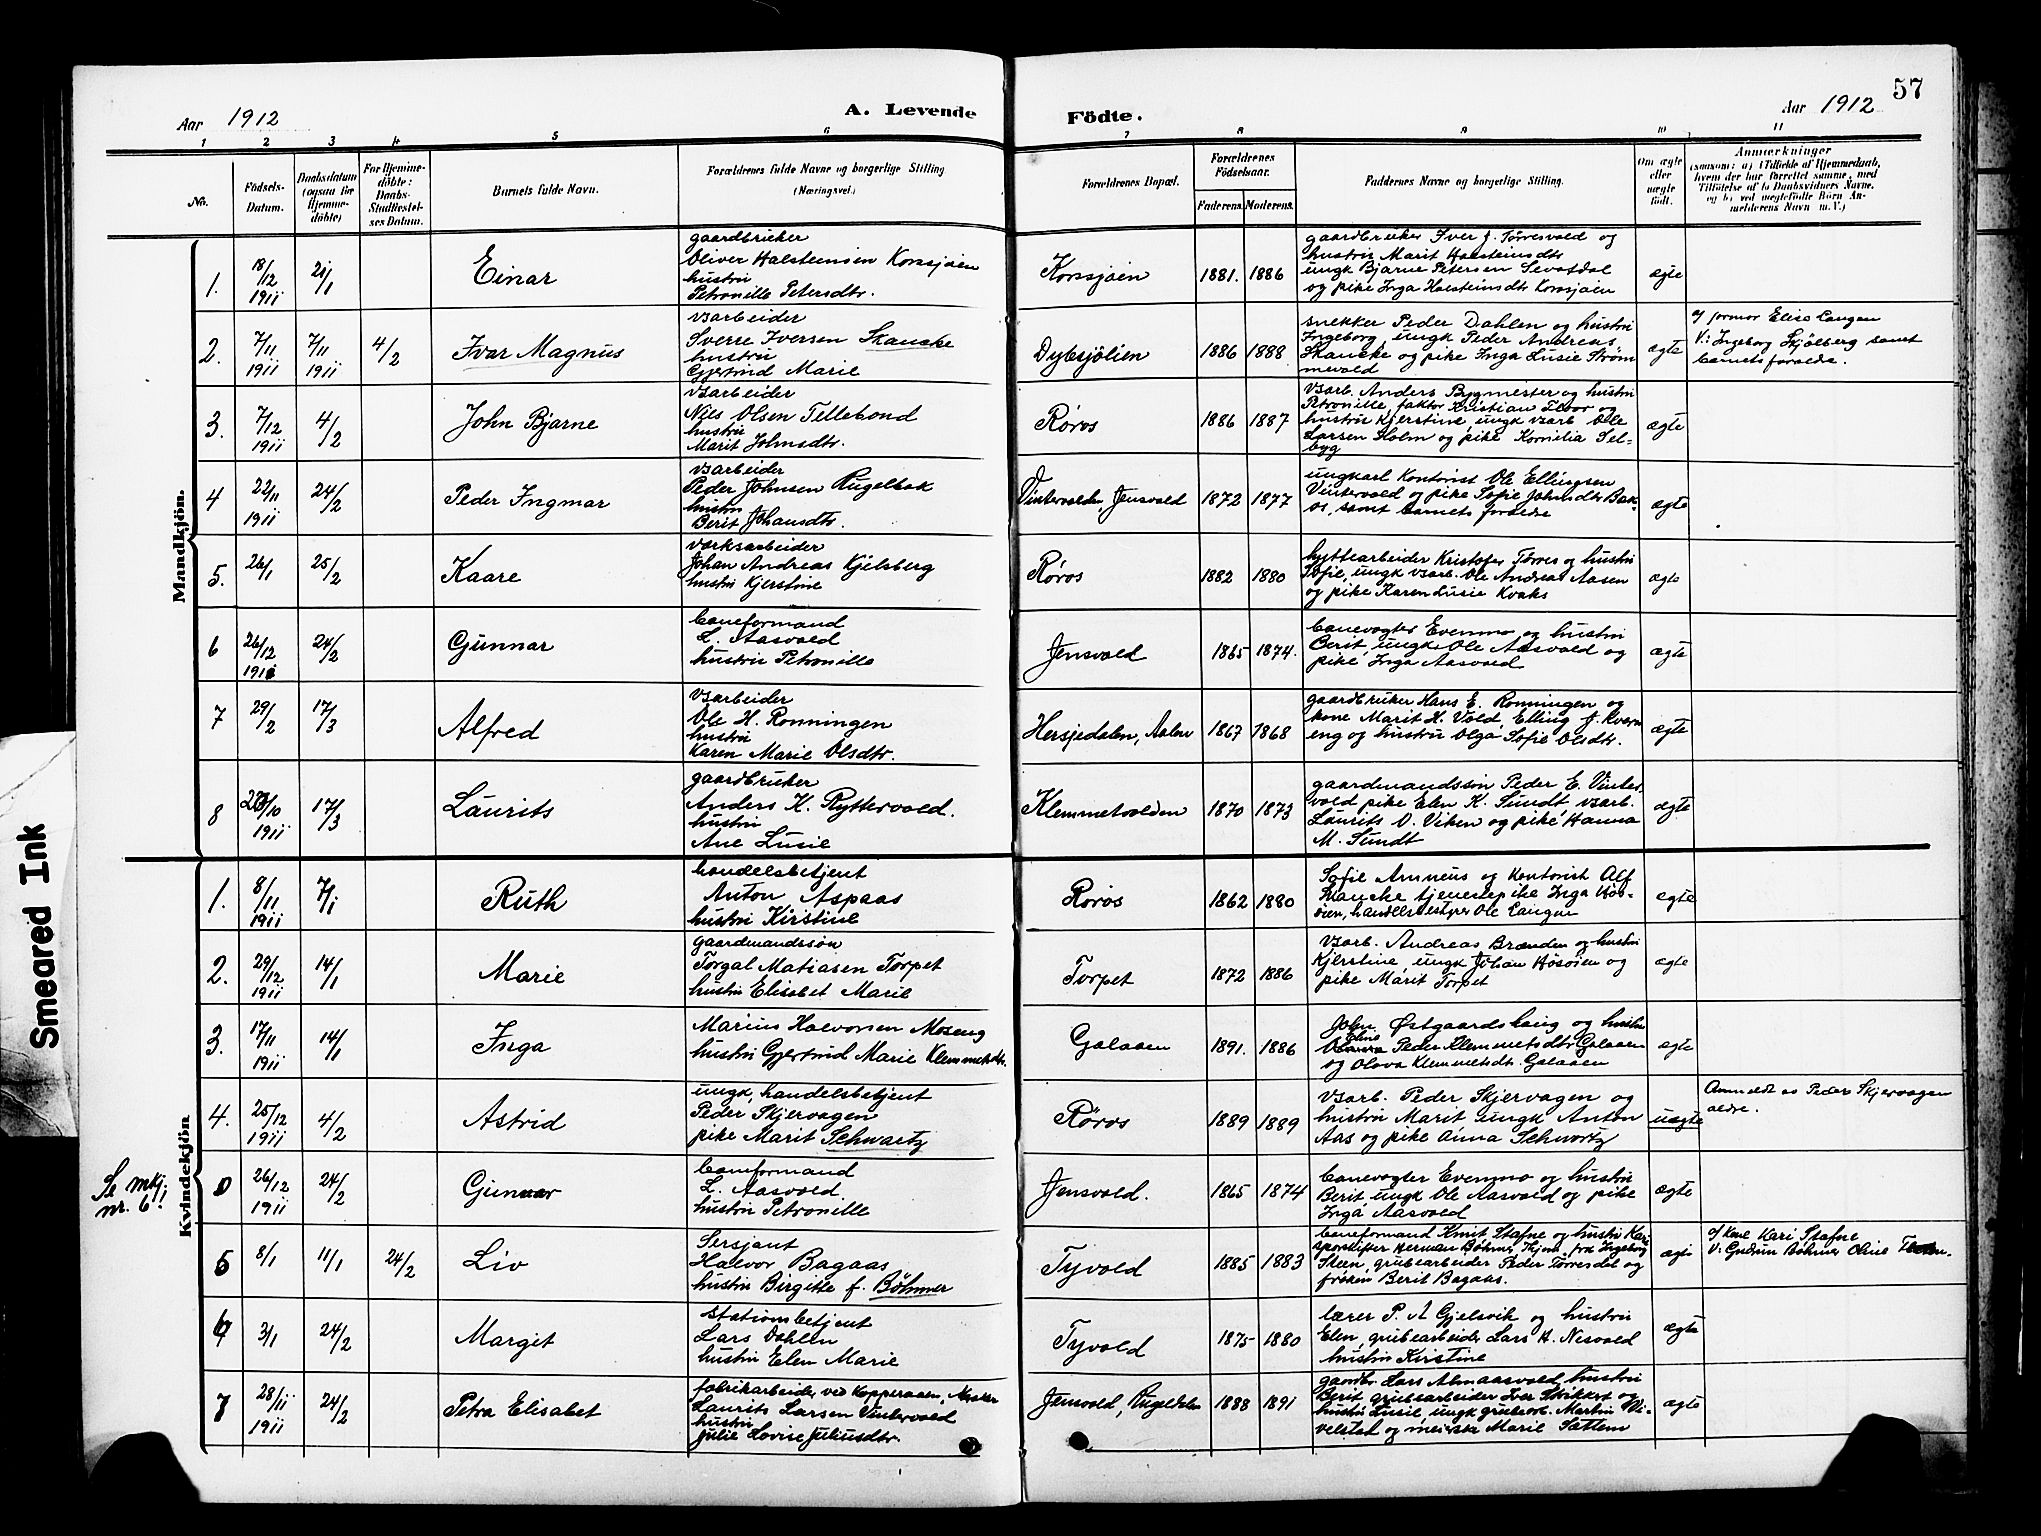 57
Aar 1912
A. Levende
Födte.
Aar 1912
1 2 3 4 5 6 7 8 9 10 11
No.
Födsels-Datum.
Daabsdatum (ogsaa för Hjemmedöbte)
For Hjemmedöbte: Daabs Stadfæstelses Datum.
Barnets fulde Navn.
Forældrenes fulde Navne og borgerlige Stilling (Næringsvei.)
Forældrenes Bopæl.
Forældrenes Födselsaar.
Faderens. Moderens.
Faddernes Navne og borgerlige Stilling.
Om ægte eller uægte födt.
Anmærkninger
(saasom: a) i Tilfælde af Hjemmedaab,
hvem der har forrettet samme, med
Tilföielse af to Daabsvidners Navne,
og b) ved uægtefödte Börn An-
melderens Navn m. V.)
Mandkjön.
1. 18/12 1911 21/1 Einar
gaardbruker
Oliver Halsteinsen Korssjøen
hustru
Petronille Petersdtr.
Korssjøen 1881. 1886
gaardbruker Iver J. Tørresvold og
hustru Marit Halsteinsdtr
ungk Bjarne Petersen Sevatdal
og pike Inga Halsteinsdtr Korssjøen
ægte
2. 7/11 1911 7/11 1911 4/2 Ivar Magnus
vsarbeider
Sverre Iversen Skancke
hustru
Gjertrud Marie
Dybsjølien 1886 1888
snekker Peder Dahlen og hustru
Ingeborg, ungk Peder Andreas
Skancke og pike Inga Lusie Strøm
mevold
ægte
af farmor Elise Langen
V: Ingeborg Skjølberg samt
barnets forældre.
3. 7/12 1911 4/2 John Bjarne
vsarbeider
Nils Olsen Tellebond
hustru
Marit Johnsdtr.
Røros 1886 1887
vsarb. Anders Bygmester og hustru
Petronille, faktor Kristian Floor og
hustru Kjerstine ungk vsarb Ole
Larsen Holm og pike Kornelia Sel-
byg
ægte
4 22/11 1911 24/2 Peder Ingmar
vsarbeider
Peder Johnsen Rugelbak
hustru
Berit Johansdtr.
Vintervolden, Jensvold 1872 1877
ungkarl Kontorist Ole Ellingsen
Vintervold og pike Sofie Johnsdtr Bak-
os, samt barnets forældre
ægte
5. 26/1 25/2 Kaare
verksarbeider
Johan Andreas Kjelsberg
hustru Kjerstine
Røros 1882 1880
hyttearbeider Kristofer Tørres og hustru
Sofie, ungk vsarb. Ole Andreas Aasen
og pike Karen Lusie Kvaks
ægte
6 26/12 1911 24/2 Gunnar
baneformand
L. Aasvold
hustru Petronille
Jensvold 1865 1874.
banevogter Evenmo og hustru
Berit, ungk Ole Aasvold og
pike Inga Aasvold
ægte
7 29/2 17/3 Alfred
vsarbeider
Ole H. Rønningen
hustru
Karen Marie Olsdtr.
Hersjedalen, Aalen 1867 1868
gaardbruker Hans E. Rønningen og
kone Marit H. Vold, Elling J. Kvern
eng og hustru Olga Sofie Olsdtr.
ægte
8 /10 1911 17/3 Laurits
gaardbruker
Anders K. Ryttervold.
hustru
Ane Lusie
Klemmetvolden 1870 1873
gaardmandssøn Peder E. Vinter
vold pike Elen K. Sundt vsarb.
Laurits O. Viken og pike Hanna
M. Sundt
ægte
Kvindekjön
1. 8/11 1911 7/1 Ruth
handelsbetjent
Anton Aspaas
hustru Kirstine
Røros 1862 1880
Sofie Amneus og Kontorist Alf
Skancke tjenestepike Inga Høs-
øien, handelsbestyrer Ole Langen
ægte
2. 29/12 1911 14/1 Marie
gaardmandssøn
Torgal Matiasen Torpet
hustru Elisabet Marie
Torpet 1872 1886
vsarb. Andreas Brænden og hustru
Kjerstine, ungk Johan Høsøien og
pike Marit Torpet
ægte
3. 17/11 1911 14/1 Inga
Marius Halvorsen Moseng
hustru Gjertrud Marie Klemmetsdtr.
Galaaen 1891. 1886
John Østgaardshaug og hustru
Peder Klemmetsdtr Galaaen
og Olava Klemmetsdtr. Galaaen
ægte
4. 25/12 1911 4/2 Astrid
ungk, handelsbetjent
Peder Skjervagen
pike Marit Schwartz
Røros 1889 1889
vsarb. Peder Skjervagen og
hustru Marit ungk Anton
Aas og pike Anna Schwartz
uægte
Anmeldt av Peder Skjervagen
ældre.
Se mkj.
nr. 6!
26/12 1911 24/2 Gunnar
baneformand
L. Aasvold.
hustru Petronille
Jensvold. 1865 1874
banevogter Evenmo og hustru
Berit ungk Ole Aasvold og pike
Inga Aasvold
ægte
5 8/1 11/1 24/2 Liv
Sersjant
Halvor Bagaas
hustru Birgitte f. Bøhmer
Tyvold 1885 1883
baneformand Knut Stafne og hustru Kari
sporskifter Herman Bøhmer, Hjem. frk Ingeborg
Skeen, grubearbeider Peder Tørresdal og
frøken Berit Bagaas.
ægte
af Kone Kari Stafne
V: Gudrun Bøhmer Oline
6 3/1 24/2 Margit
stationsbetjent
Lars Dahlen
hustru Elen Marie
Tyvold 1875 1880
lærer P. A Gjelsvik og hustru
Elen, grubearbeider Lars H. Nesvold
hustru Kirstine
ægte
7 28/11 1911 24/2 Petra Elisabet
fabrikarbeider ved Kopperaaen, Meraker
Laurits Larsen Vintervold
hustru
Julie Lovise Juliusdtr.
Jensvold, Rugeldalen 1888 1891
gaardbr. Lars Almaasvold, hustru
Berit grubearbeider Ivar Hvikkst og
hustru Lusie, ungk grubearb. Martin Mi-
velstad og meierske Marie Sættem
ægte
Smeared Ink